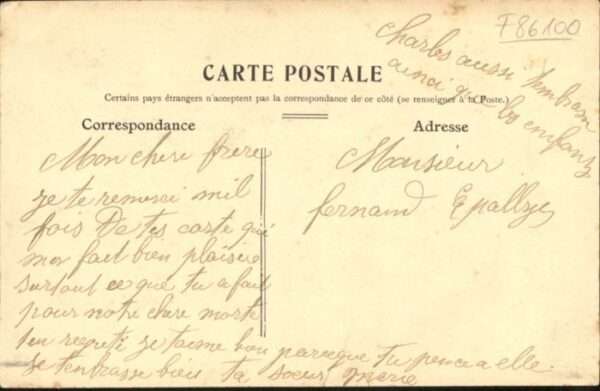 F86100
charles aussi tembrasse
ainci que les enfants
CARTE POSTALE
Certains pays étrangers n'acceptent pas la correspondance de ce côté (se renseigner à la Poste.)
Correspondance
Adresse
Mon chere frere
je te remersi mil
fois De tes carte qui
mon fait bien plaisire
surtout ce que tu a fait
pour notre chere morte
je taime bon parceque tu pence a elle
je tenbrasse bien ta soeur marie
Monsieur
fernand